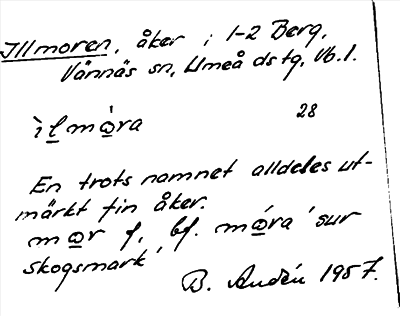 Illmoren, åker, i 1-2 Berg,
Vännäs sn, Umeå dstg, Vb. l.
ìlmὼra 28
En trots namnet alldeles ut-
märkt fin åker.
mωr f, bf. mώra 'sur
skogsmark'
B. Audén 1957.